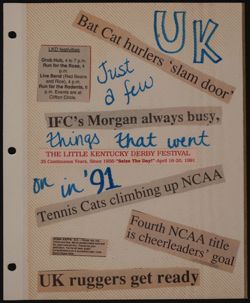 UK
Bat Cat hurlers 'slam door'
LKD festivities
Grub Hub, 4 to 7 p.m.
Run for the Rose, 4
p.m.
Live Band (Red Beans
and Rice), 4 p.m.
Run for the Rodents, 6
p.m. Events are at
Clifton Circle.
Just
a few
IFC's Morgan always busy,
things that went
THE LITTLE KENTUCKY DERBY FESTIVAL
35 Continuous Years, Since 1956 "Seize The Day!" April 16-20, 1991
on in '91
Tennis Cats climbing up NCAA
Fourth NCAA title
is cheerleaders' goal
UK ruggers get ready